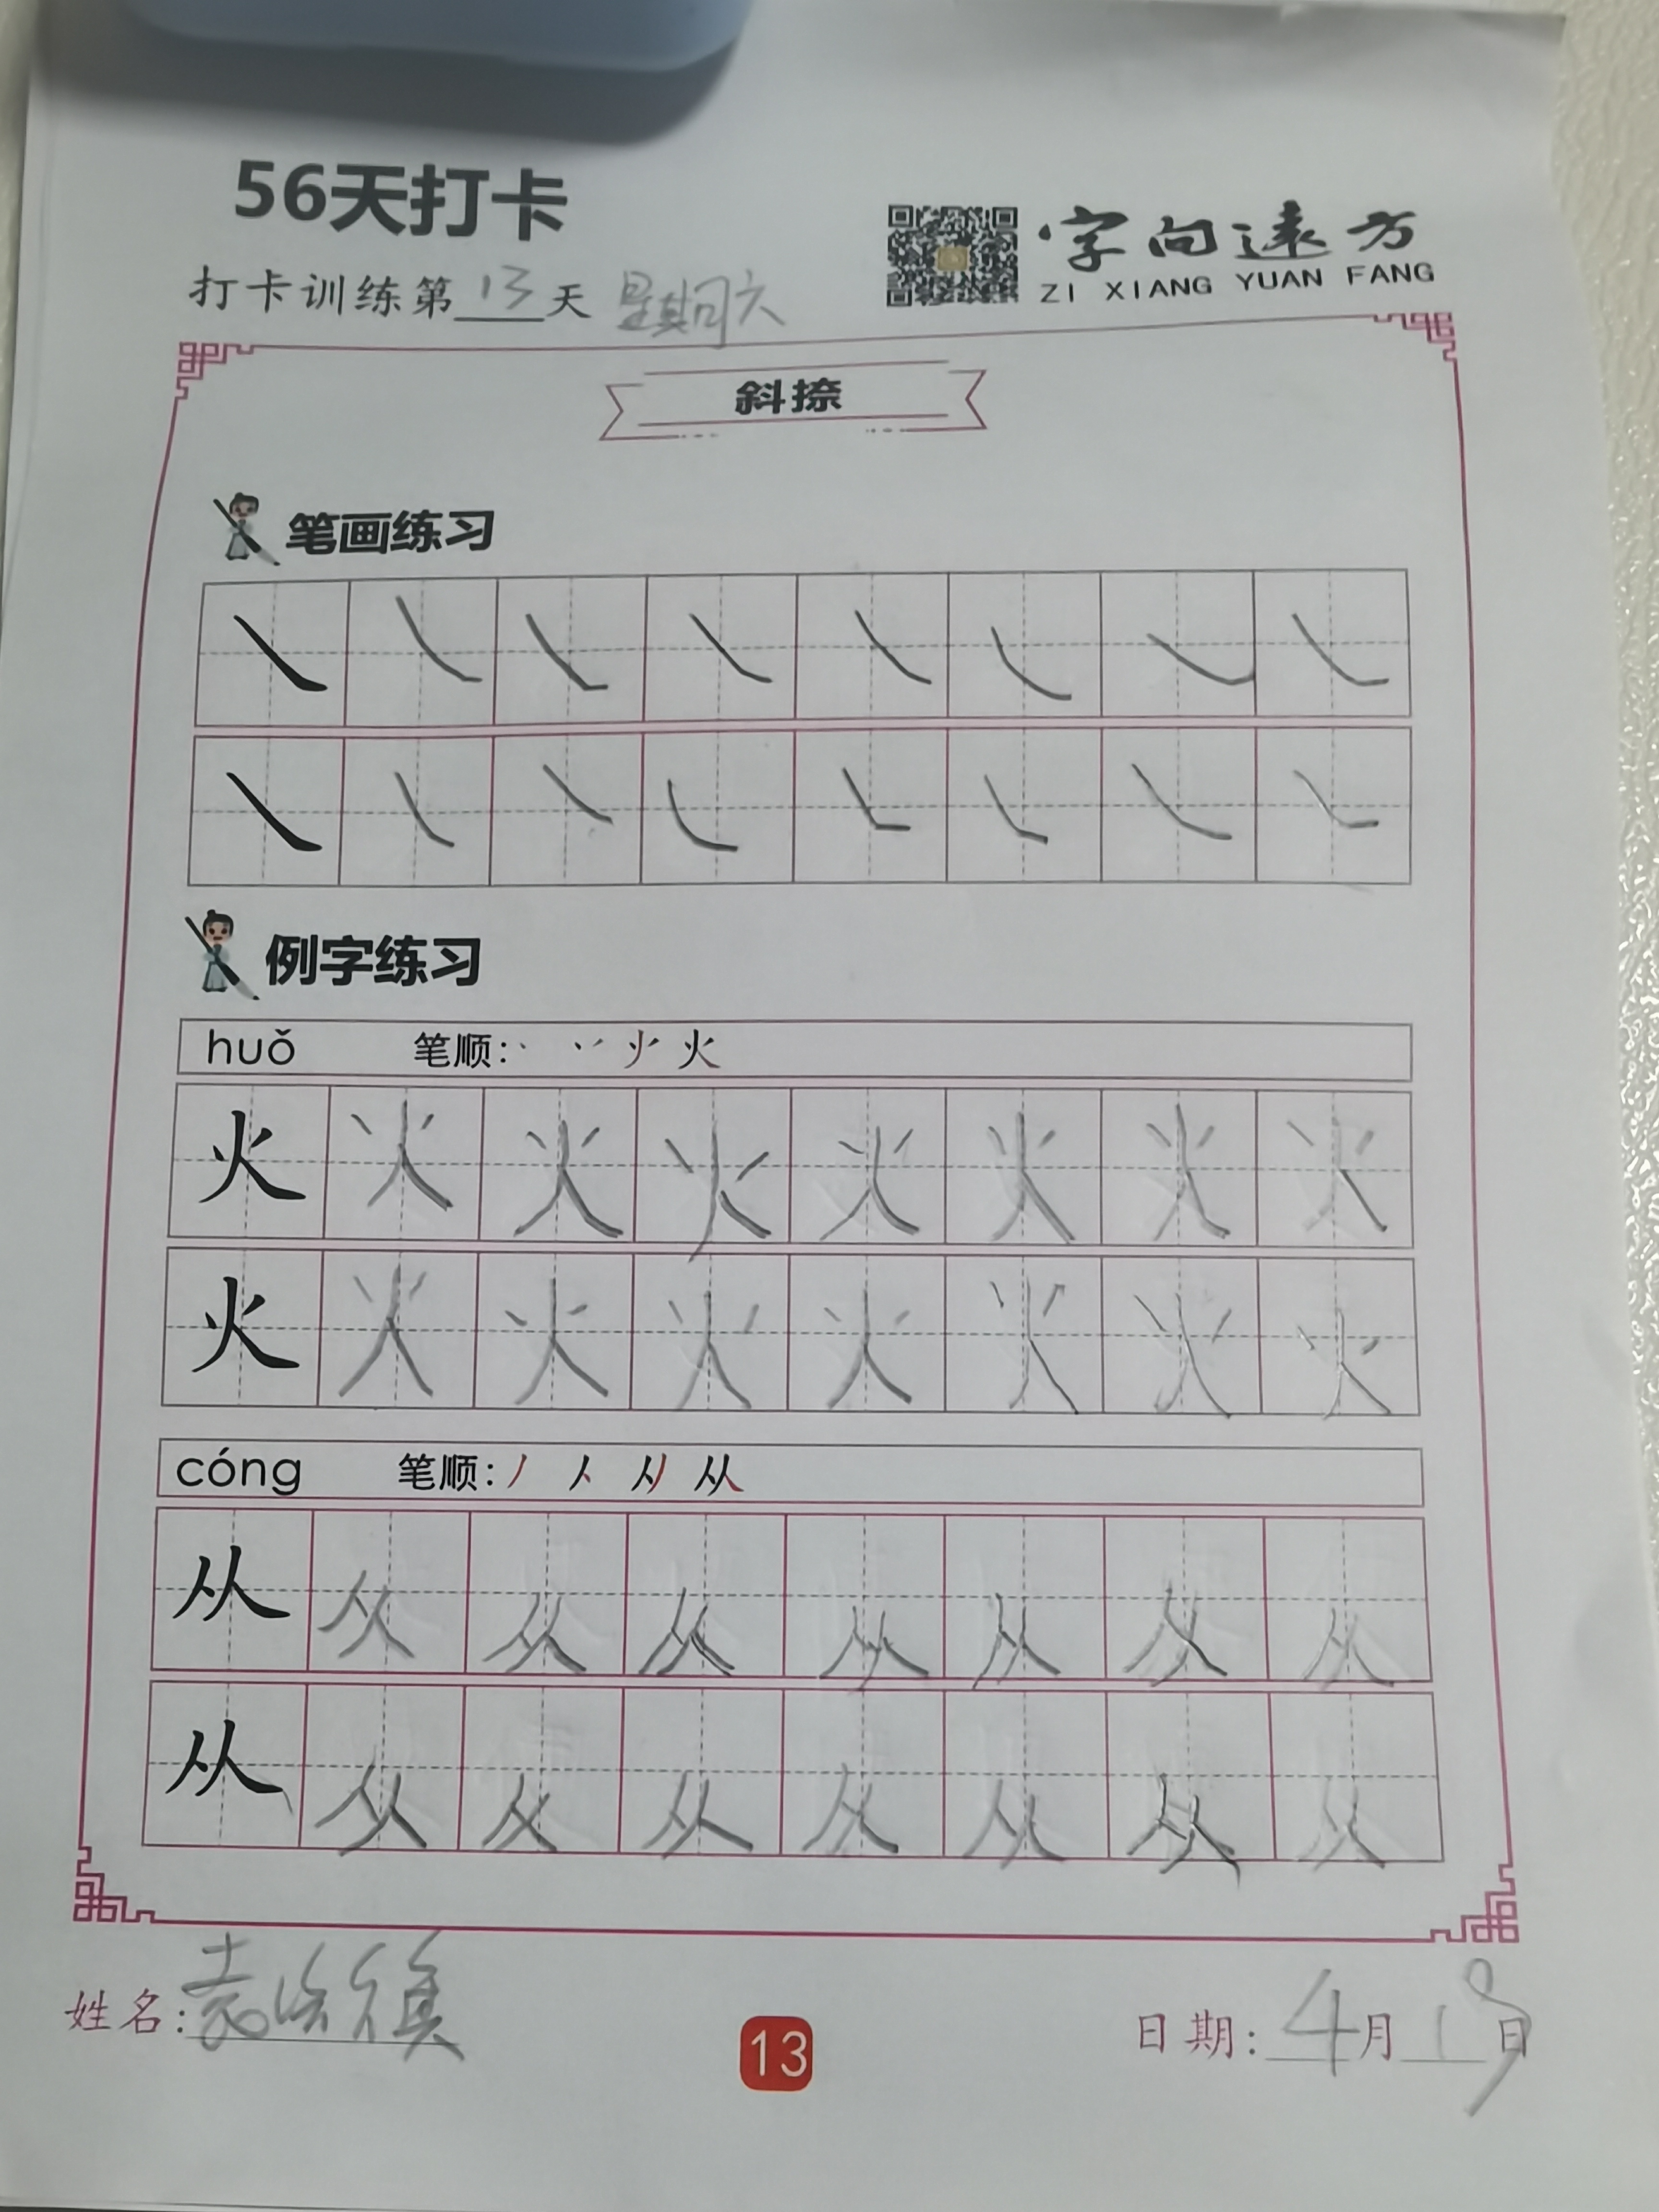 56天打卡
字向远方
ZI XIANG YUAN FANG
打卡训练第13天 星期六
斜捺
笔画练习
例字练习
huǒ 笔顺: 火
火 火 火 火 火 火 火 火
火 火 火 火 火 火 火 火
cóng 笔顺: 丿 从
从 从 从 从 从 从 从 从
从 从 从 从 从 从 从 从
姓名: 袁
13
日期: 4月19日